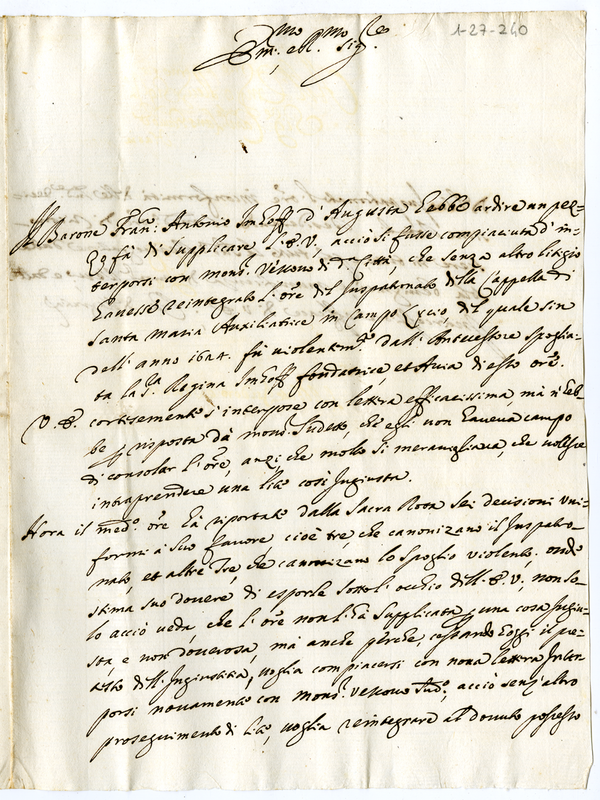 1-27-240
Em.mo et Ill.mo Sig.re
Il Barone Fran.co Antonio Imhoff d'Augusta hebbe ardire un pez-
zo fà di supplicare l'E.V., acciò si fusse compiaciuta d'in-
terporsi con mons.r Vescovo di d.a Città, che senza altro litigio
havesse reintegrato l'ore del Juspatronato della Cappella di
Santa Maria Auxiliatrice in Campo Lycio, del quale sin
dell'anno 1624. fù violentem.te dall'Antivestore spoglia-
ta la S.ra Regina Imhoff fondatrice, et Avia di esso ore.
V.E. cortesemente s'interpose con lettera efficacissima, mà n'heb-
be p risposta dà mons.r sudetto, che egli non haveva campo
di consolar l'ore, anzi che molto si meravigliava, che volesse
intraprendere una lite così Ingiusta.
Hora il med.o ore hà riportato dalla Sacra Rota sei decisioni uni-
formi à suo favore, cioè tre, che canonizano il Juspatro-
nato, et altre tre, che canonizano lo spoglio violento, onde
stima suo dovere di esporle sotto l'occhio dell'E.V., non so-
lo acciò veda, che l'ore non l'hà supplicata p una cosa Ingiu-
sta, e non doverosa, mà anche perche, cessando hoggi il pre-
testo dell'Ingiustitia, voglia compiacersi con nova lettera Inter-
porsi novamente con Mons.r Vescovo Sud.o, acciò senz'altro
proseguimento di lite, voglia reintegrare al dovuto possesso